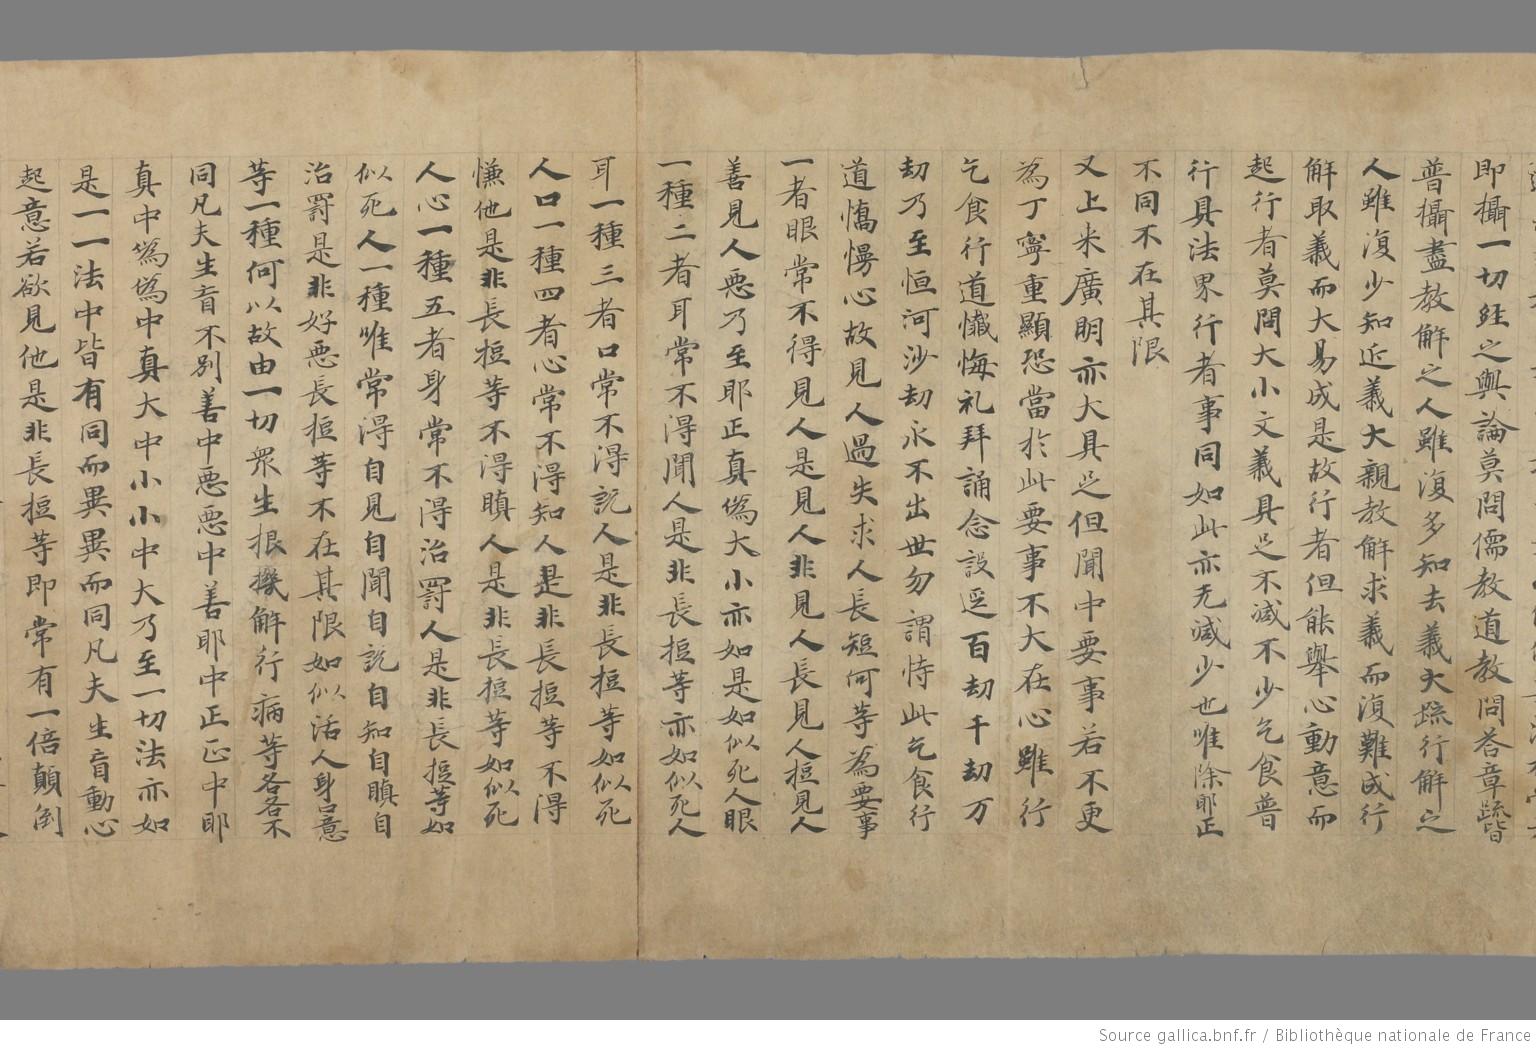 即攝一切經之與論莫問儒教道教問荅章疏皆
普攝盡教解之人雖復多知去義大疏行解之
人雖復少知近義大親教解求義而復難成行
解取義而大易成是故行者但能舉心動意而
起行者莫問大小文義具足不減不少乞食普
行具法界行者事同如此亦无減少也唯除耶正
不同不在其限
又上來廣明亦大具足但聞中要事若不更
為丁寧重顯恐當於此要事不大在心雖行
乞食行道懺悔礼拜誦念設逕百劫千劫万
劫乃至恒河沙劫永不出世勿謂恃此乞食行
道憍慢心故見人過失求人長短何等為要事
一者眼常不得見人是見人非見人長見人短見人
善見人惡乃至耶正真偽大小亦如是如似死人眼
一種二者耳常不得聞人是非長短等亦如似死人
耳一種三者口常不得說人是非長短等如似死
人口一種四者心常不得知人是非長短等不得
慊他是非長短等不得瞋人是非長短等如似死
人心一種五者身常不得治罰人是非長短等如
似死人一種唯常得自見自聞自說自知自瞋自
治罰是非好惡長短等不在其限如似活人身口意
等一種何以故由一切眾生根機解行病等各各不
同凡夫生盲不別善中惡惡中善耶中正正中耶
真中偽偽中真大中小小中大乃至一切法亦如
是一一法中皆有同而異異而同凡夫生盲動心
起意若欲見他是非長短等即常有一倍顛倒